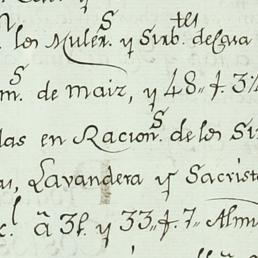 los Muler.s y Sirb.tes de Casa
m.s de maiz, y 48„f. 3½
das en Racion.s de los Sir
as, Lavandera y Sacrist
c.l ã 3f. y 33„f. 7„ Almu